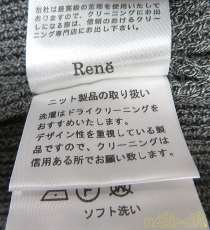 当社は最高級の生地を使用いたして
おりますので、クリーニングにお出
しになる際は、信頼のおけるクリーニ
ング専門店にお出し下さい。
René
ニット製品の取り扱い
洗濯はドライクリーニングを
おすすめいたします。
デザイン性を重視している製
品ですので、クリーニングは
信用ある所でお願い致します。
ソフト洗い